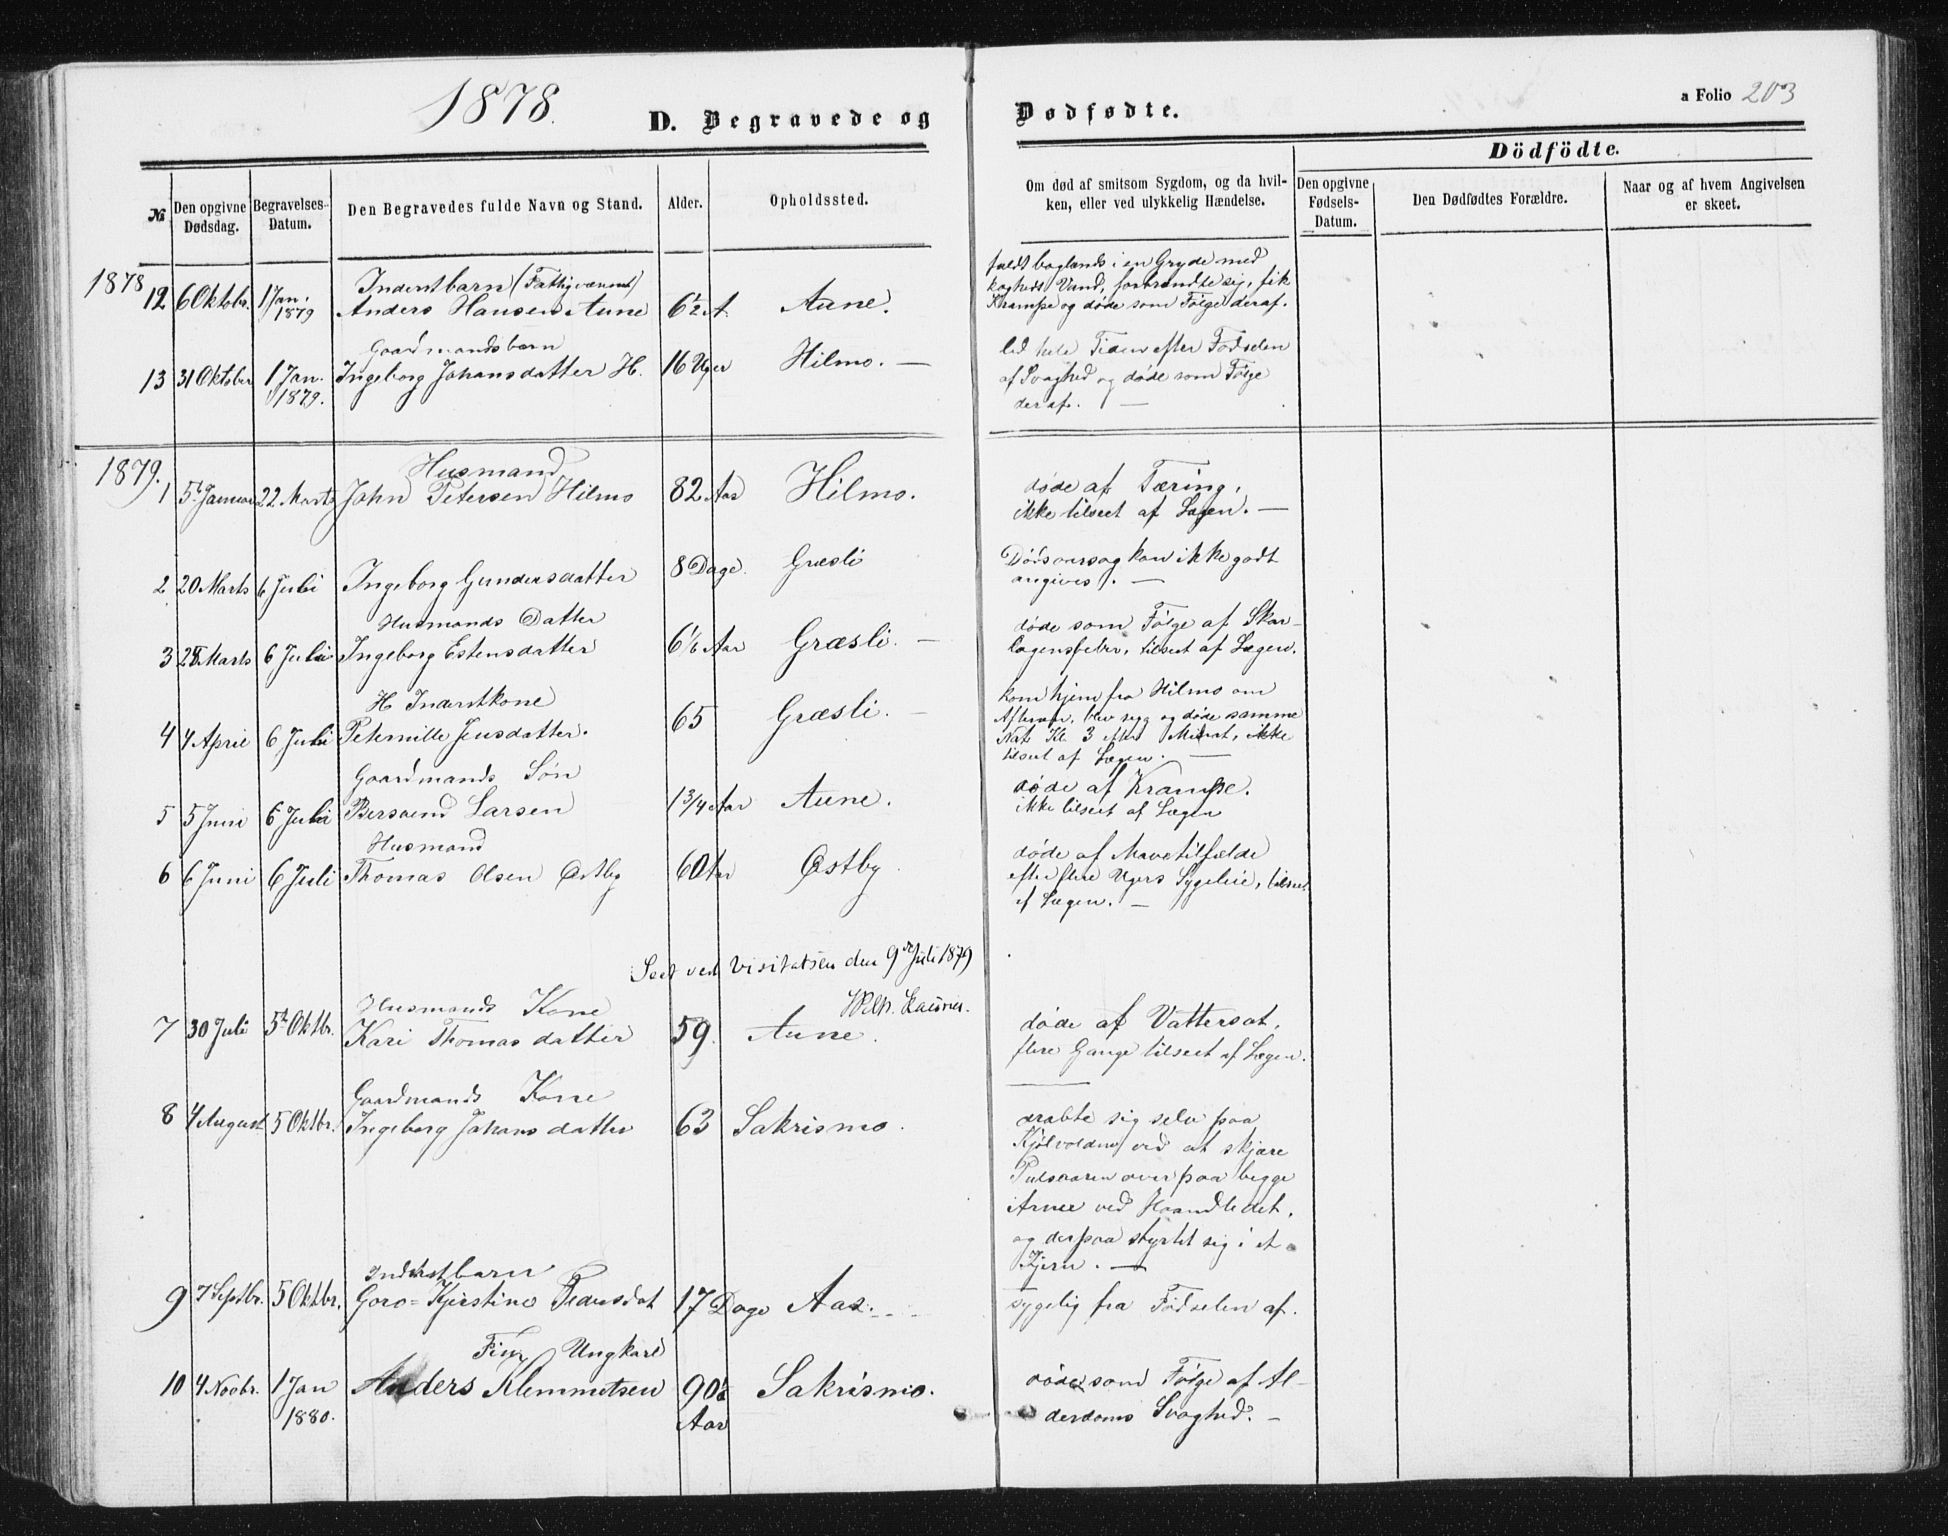 1878.
D. Begravede og Dødfødte.
a Folio 203
№
Den opgivne Dødsdag.
Begravelses-Datum.
Den Begravedes fulde Navn og Stand.
Alder.
Opholdssted.
Om død af smitsom Sygdom, og da hvil-
ken, eller ved ulykkelig Hændelse.
Dödfödte.
Den opgivne Fødsels-Datum.
Den Dødfødtes Forældre.
Naar og af hvem Angivelsen er skeet.
1878
Inderstbarn
12 6 Oktobr. 1 Jan. 1879 Anders Hansen Aune 6½ A. Aune.
faldt baglænds i en Gryde med
koghedt Vand, forbrændte sig, fik
Krampe og døde som Følge deraf.
Gaardmandsbarn
13 31 Oktober 1 Jan. 1879. Ingeborg Johansdatter H. 16 Uger Hilmo. —
led hele Tiden efter Fødselen
af Svaghed og døde som Følge
deraf. —
1879.
Husmand
1 5t Januar 22 Marts John Petersen Hilmo 82 Aar Hilmo.
døde af Tæring,
ikke tilseet af Lægen. —
2 20 Marts 6 Juli Ingeborg Gundersdatter 8 Dage. Græsli
Dødsaarsag kan ikke godt
angives. —
Husmands Datter
3 28 Marts 6 Juli Ingeborg Estensdatter 6 1/6 Aar Græsli. —
døde som Følge af Skar-
lagensfeber, tilseet af Lægen.
H Inderstkone
4 4 April 6 Juli Peternille Jensdatter. 65 Græsli. —
kom hjem fra Hilmo om
Aftenen, blev syg og døde samme
Nat Kl. 3 efter ikke
tilseet af Lægen. —
Gaardmands Søn
5 5 Juni 6 Juli Larsen 1 3/4 Aar Aune.
døde af Krampe.
ikke tilseet af Lægen
Husmand
6 6 Juni 6 Juli Thomas Olsen Østby 60 Aar Østby
døde af Mavetilfælde
efter flere Ugers Sygeleie, tilseet
af Lægen. —
Seet ved Visitatsen den 9de Juli 1879
Husmands Kone
7 30 Juli 5t Oktbr. Kari Thomasdatter 59. Aune.
døde af Vattersot,
flere Gange tilseet af Lægen.
Gaardmands Kone
8 4 August 5 Oktbr. Ingeborg Johansdatter 63 Sakrismo.
dræbte sig selv paa
Kjølvolden ved at skjære
Pulsaaren over paa begge
Arme ved Haandledet,
og derpaa styrtet sig i et
Kjern. —
Inderstbarn
9 7 Septbr. 5 Oktbr. Goro=Kjerstine Pedersdat 17 Dage Aas.
sygelig fra Fødselen af.
Ungkarl
10 4 Novbr. 1 Jan 1880. Anders Klemmetsen 90½ Aar Sakrismo.
døde som Følge af Al-
derdoms Svaghed. —